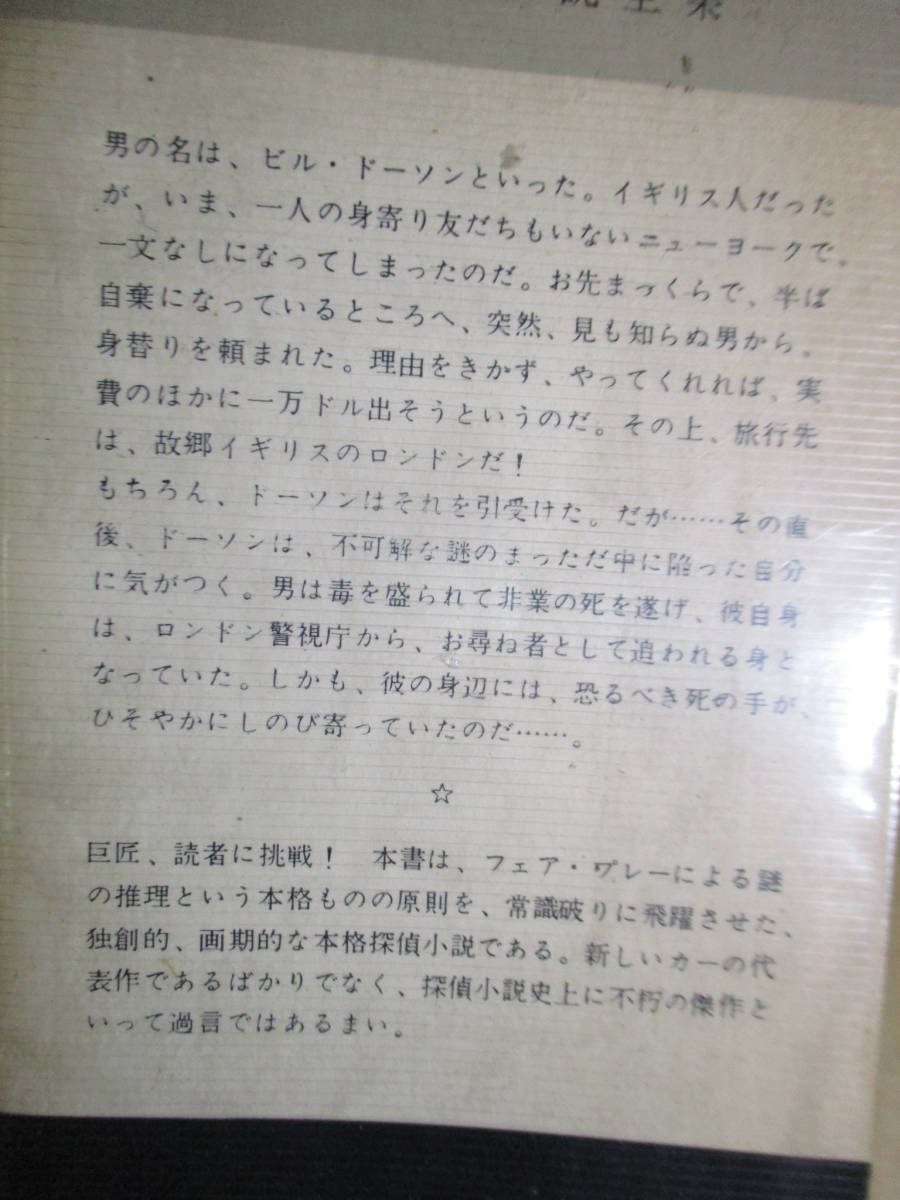 男の名は、ビル・ドーソンといった。イギリス人だった
が、いま、一人の身寄り友だちもいないニューヨークで、
一文なしになってしまったのだ。お先まっくらで、半ば
自棄になっているところへ、突然、見も知らぬ男から、
身替りを頼まれた。理由をきかず、やってくれれば、実
費のほかに一万ドル出そうというのだ。その上、旅行先
は、故郷イギリスのロンドンだ！
もちろん、ドーソンはそれを引受けた。だが……その直
後、ドーソンは、不可解な謎のまっただ中に陥った自分
に気がつく。男は毒を盛られて非業の死を遂げ、彼自身
は、ロンドン警視庁から、お尋ね者として追われる身と
なっていた。しかも、彼の身辺には、恐るべき死の手が、
ひそやかにしのび寄っていたのだ……。
☆
巨匠、読者に挑戦！　本書は、フェア・プレーによる謎
の推理という本格ものの原則を、常識破りに飛躍させた、
独創的、画期的な本格探偵小説である。新しいカーの代
表作であるばかりでなく、探偵小説史上に不朽の傑作と
いって過言ではあるまい。